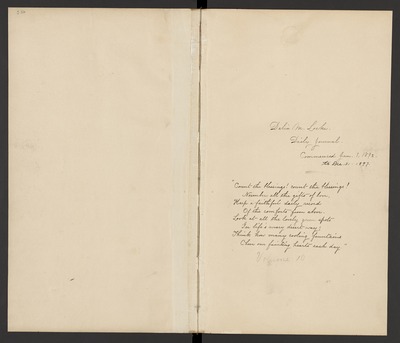 Delia M. Locke
Daily Journal.
Commenced Jan. 1, 1898
to Dec. 31. 1899.
"Count the blessings! count the blessings!
Number all the gifts of love,
Keep a faithful daily record
Of the comforts from above.
Look at all the lovely green spots
In life's weary desert way;
Think how many cooling fountains
Cheer our fainting hearts each day."
Volume